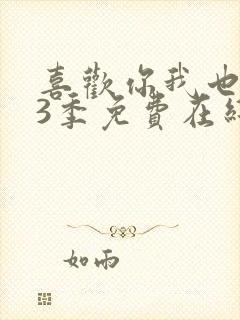 喜歡你我也
3季免費在線
如雨